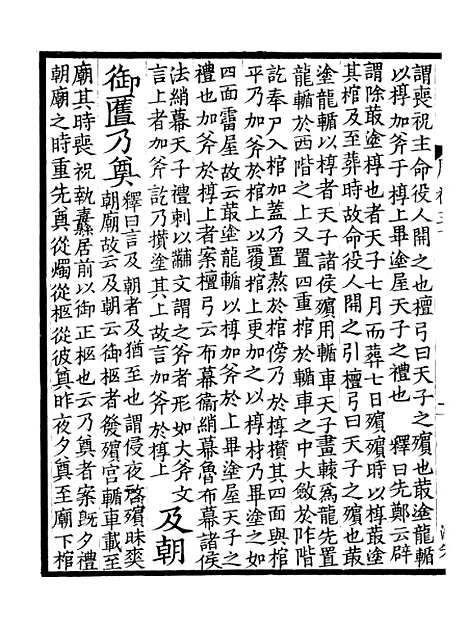 謂喪祝主命役人開之也檀弓曰天子之殯也菆塗龍輴
以椁加斧于椁上畢塗屋天子之禮也　釋曰先鄭云辟
謂除菆塗椁也者天子七月而葬七日殯殯時以椁菆塗
其棺及至葬時故命役人開之引檀弓曰天子之殯也菆
塗龍輴以椁者天子諸侯殯用輴車天子畫轅爲龍先置
龍輴於西階之上又置四重棺於輴車之中大斂於阼階
訖奉尸入棺加蓋乃置熬於棺傍乃於椁攢其四面與棺
平乃加斧於棺上以覆棺上更加之以椁材乃畢塗之如
四面霤屋故云菆塗龍輴以椁加斧於上畢塗屋天子之
禮也云加斧於椁上者案檀弓云布幕衞綃幕魯布幕諸侯
法綃幕天子禮刺以黼文謂之斧者形如大斧文
言上者加斧訖乃攢塗其上故言加斧於椁上　及朝
御匶乃奠　釋曰言及朝者及猶至也謂侵夜啓殯昧爽
朝廟故云及朝云御柩者發殯宮輴車載至
廟其時喪祝執纛居前以御正柩也云乃奠者案旣夕禮
朝廟之時重先奠從燭從柩從彼奠昨夜夕奠至廟下棺